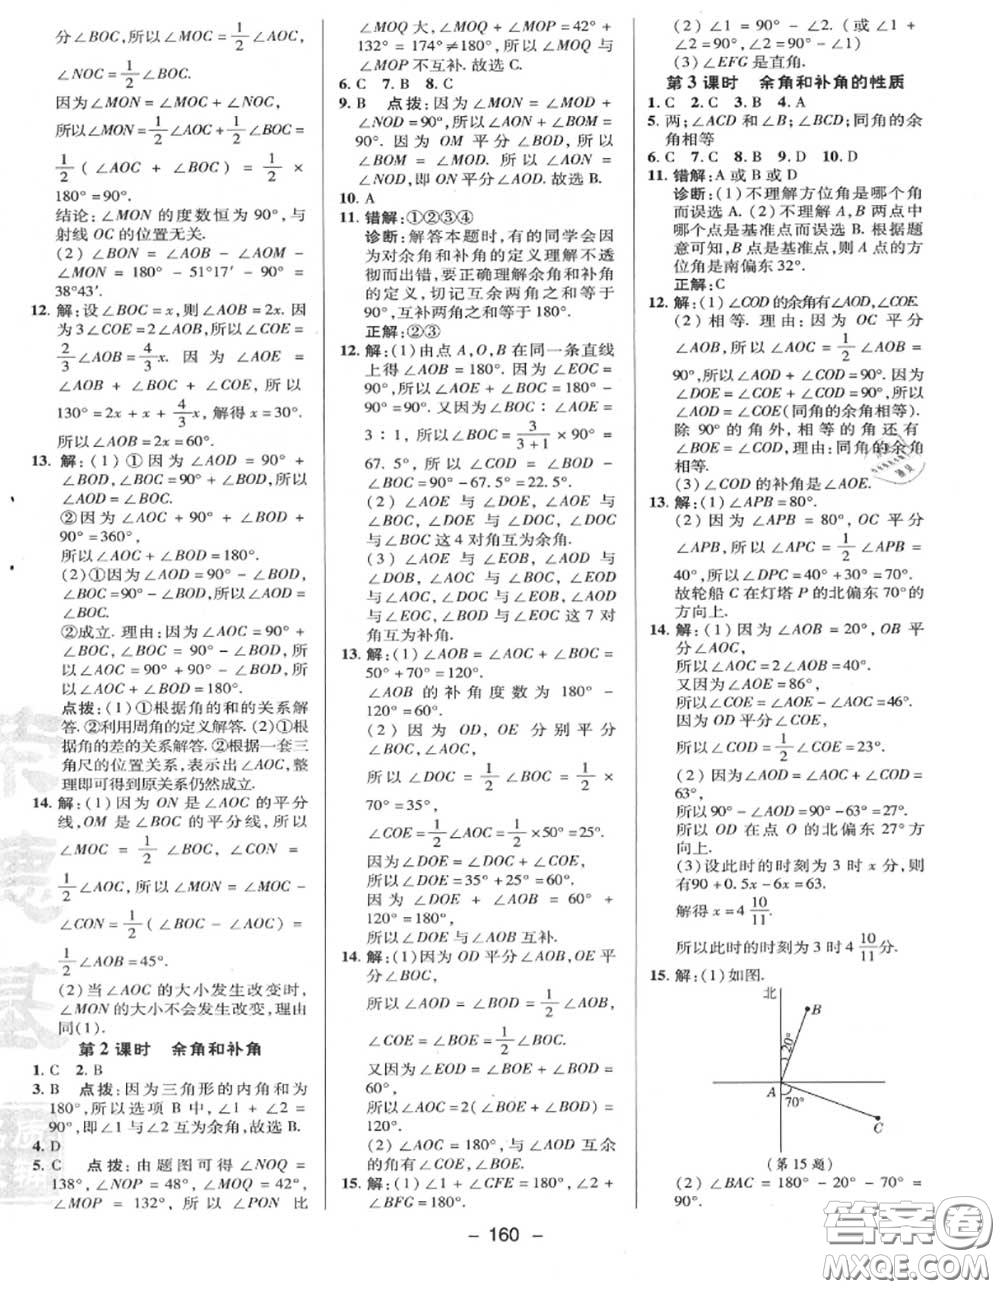 分∠BOC,所以∠MOC=1/2∠AOC,
∠NOC=1/2∠BOC.
因为∠MON=∠MOC+∠NOC,
所以∠MON=1/2∠AOC+1/2∠BOC=
1/2(∠AOC+∠BOC)=1/2×
180°=90°.
结论:∠MON的度数恒为90°,与
射线OC的位置无关.
(2)∠BON=∠AOB-∠AOM-
∠MON=180°-51°17′-90°=
38°43′.
12. 解:设∠BOC=x,则∠AOB=2x.因
为3∠COE=2∠AOB,所以∠COE=
2/3∠AOB=4/3x.因为∠AOE=
∠AOB+∠BOC+∠COE,所以
130°=2x+x+4/3x,解得x=30°.
所以∠AOB=2x=60°.
13. 解:(1)①因为∠AOD=90°+
∠BOD,∠BOC=90°+∠BOD,所以
∠AOD=∠BOC.
②因为∠AOC+90°+∠BOD+
90°=360°,
所以∠AOC+∠BOD=180°.
(2)①因为∠AOD=90°-∠BOD,
∠BOC=90°-∠BOD,所以∠AOD=
∠BOC.
②成立.理由:因为∠AOC=90°+
∠BOC,∠BOC=90°-∠BOD,所
以∠AOC=90°+90°-∠BOD,所
以∠AOC+∠BOD=180°.
点拨:(1)①根据角的和的关系解
答.②利用周角的定义解答.(2)①根
据角的差的关系解答.②根据一套三
角尺的位置关系,表示出∠AOC,整
理即可得到原关系仍然成立.
14. 解:(1)因为ON是∠AOC的平分
线,OM是∠BOC的平分线,所以
∠MOC=1/2∠BOC,∠CON=1/2
∠AOC,所以∠MON=∠MOC-
∠CON=1/2(∠BOC-∠AOC)=
1/2∠AOB=45°.
(2)当∠AOC的大小发生改变时,
∠MON的大小不会发生改变,理由
同(1).
第2课时 余角和补角
1. C 2. B
3. B 点拨:因为三角形的内角和为
180°,所以选项B中,∠1+∠2=
90°,即∠1与∠2互为余角,故选B.
4. D
5. C 点拨:由题图可得∠NOQ=
138°,∠NOP=48°,∠MOQ=42°,
∠MOP=132°,所以∠PON比
∠MOQ大,∠MOQ+∠MOP=42°+
132°=174°≠180°,所以∠MOQ与
∠MOP不互补.故选C.
6. C 7. B 8. C
9. B 点拨:因为∠MON=∠MOD+
∠NOD=90°,所以∠AON+∠BOM=
90°.因为OM平分∠BOD,所以
∠BOM=∠MOD.所以∠AON=
∠NOD,即ON平分∠AOD.故选B.
10. A
11. 错解:①②③④
诊断:解答本题时,有的同学会因
为对余角和补角的定义理解不透
彻而出错,要正确理解余角和补角
的定义,切记互余两角之和等于
90°,互补两角之和等于180°.
正解:②③
12. 解:(1)由点A,O,B在同一条直线
上得∠AOB=180°.因为∠EOC=
90°,所以∠AOE+∠BOC=180°-
90°=90°.又因为∠BOC∶∠AOE=
3∶1,所以∠BOC=3/(3+1)×90°=
67.5°,所以∠AOE=90°-67.5°=22.5°.
(2)∠AOE与∠DOE,∠AOE与
∠BOC,∠DOE与∠DOC,∠DOC
与∠BOC这4对角互为余角.
(3)∠AOE与∠EOB,∠AOD与
∠DOB,∠AOC与∠BOC,∠EOD
与∠AOC,∠BOC与∠AOC,∠DOE
与∠EOB,∠BOD与∠EOC这7对
角互为补角.
13. 解:(1)∠AOB=∠AOC+∠BOC=
50°+70°=120°.
∠AOB的补角度数为180°-
120°=60°.
(2)因为OD,OE分别平分
∠BOC,∠AOC,
所以∠DOC=1/2∠BOC=1/2×
70°=35°,
∠COE=1/2∠AOC=1/2×50°=25°.
因为∠DOE=∠DOC+∠COE,
所以∠DOE=35°+25°=60°.
因为∠DOE+∠AOB=60°+
120°=180°,
所以∠DOE与∠AOB互补.
14. 解:(1)因为OD平分∠AOB,OE平
分∠BOC,
所以∠AOD=∠BOD=1/2∠AOB,
∠COE=∠BOE=1/2∠BOC.
又因为∠EOD=∠BOD+∠BOE=
60°,
所以∠AOC=2(∠BOE+∠BOD)=
120°.
(2)∠AOC=180°,与∠AOD互余
的角有∠COE,∠BOE.
15. 解:(1)∠1+∠CFE=180°,∠2+
∠BFG=180°.
(2)∠1=90°-∠2.(或∠1+
∠2=90°,∠2=90°-∠1)
(3)∠EFG是直角.
第3课时 余角和补角的性质
1. C 2. C 3. B 4. A
5. 两;∠ACD和∠B;∠BCD;同角的余
角相等
6. C 7. C 8. B 9. D 10. D
11. 错解:A或B或D
诊断:(1)不理解方位角是哪个角
而误选A.(2)不理解A,B两点中
哪个点是基准点而误选B.根据题
意可知,B点是基准点,则A点的方
位角是南偏东32°.
正解:C
12. 解:(1)∠COD的余角有∠AOE,∠COE.
(2)相等.理由:因为OC平分
∠AOB,所以∠AOC=1/2∠AOB=
90°,所以∠AOD+∠COD=90°.因为
∠DOE=∠COE+∠COD=90°,所以
∠AOD=∠COE(同角的余角相等).
除90°的角外,相等的角还有
∠BOE=∠COD,理由:同角的余角
相等.
(3)∠COD的补角是∠AOE.
13. 解:(1)∠APB=80°.
(2)因为∠APB=80°,OC平分
∠APB,所以∠APC=1/2∠APB=
40°,所以∠DPC=40°+30°=70°.
故轮船C在灯塔P的北偏东70°的
方向上.
14. 解:(1)因为∠AOB=20°,OB平
分∠AOC,
所以∠AOC=2∠AOB=40°.
又因为∠AOE=86°,
所以∠COE=∠AOE-∠AOC=46°.
因为OD平分∠COE,
所以∠COD=1/2∠COE=23°.
(2)因为∠AOD=∠AOC+∠COD=
63°,
所以90°-∠AOD=90°-63°=27°.
所以OD在点O的北偏东27°方
向上.
(3)设此时的时刻为3时x分,则
有90+0.5x-6x=63.
解得x=4 10/11.
所以此时的时间为3时4 10/11分.
15. 解:(1)如图.
北
B
20°
A
70°
C
(第15题)
(2)∠BAC=180°-20°-70°=
90°.
- 160 -
答案圈
MXQE.COM